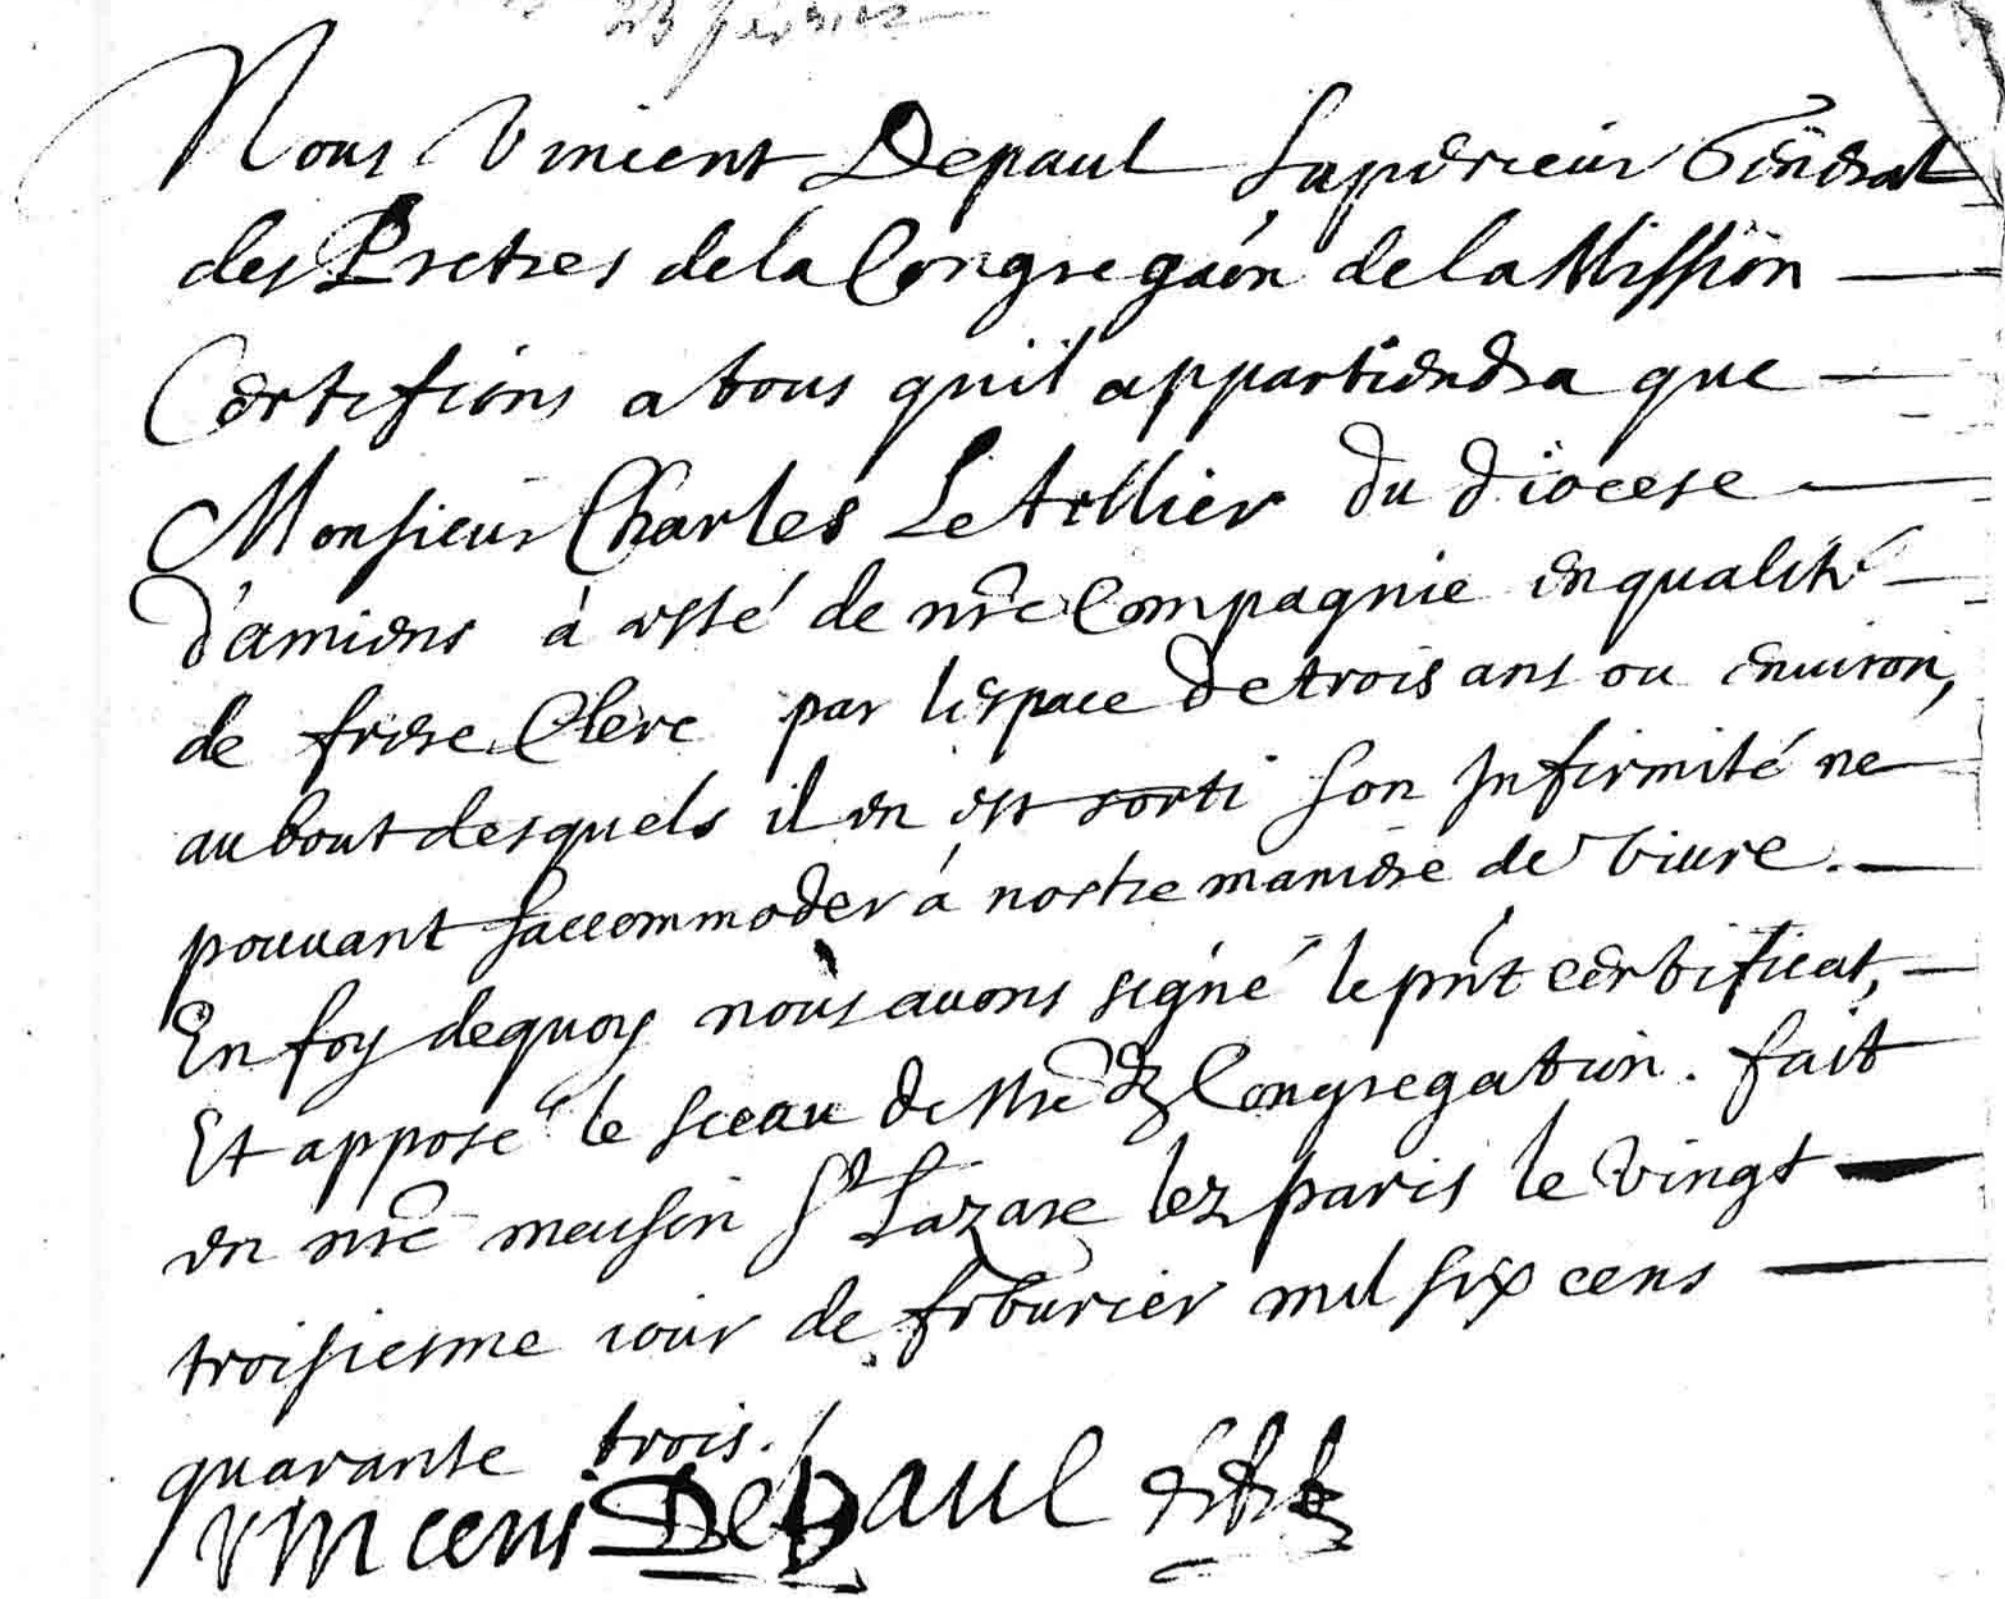 23 février
Nous Vincent Depaul Supérieur Général
des Pretres de la Congregaõn de la Mission
Certifions a tous qu'il appartiendra que
Monsieur Charles Le tellier du diocese
d'amiens à esté de nr̃e Compagnie en qualité
de frere Clerc par l'espace de trois ans ou enuiron,
au bout desquels il en est sorti son Infirmité ne
pouuant saccommoder à nostre maniere de viure.
En foy dequoy nous auons signé le pnt certificat,
Et apposé le sceau de nr̃e de Congregation. fait
en nr̃e maison St Lazare lez paris le vingt
troisiesme iour de feburier mil six cens
quarante trois./
Vincent Depaul